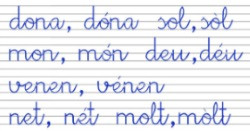 dona, dóna sol, sòl
mon, món deu, déu
venen, vénen
net, nét molt, mòlt